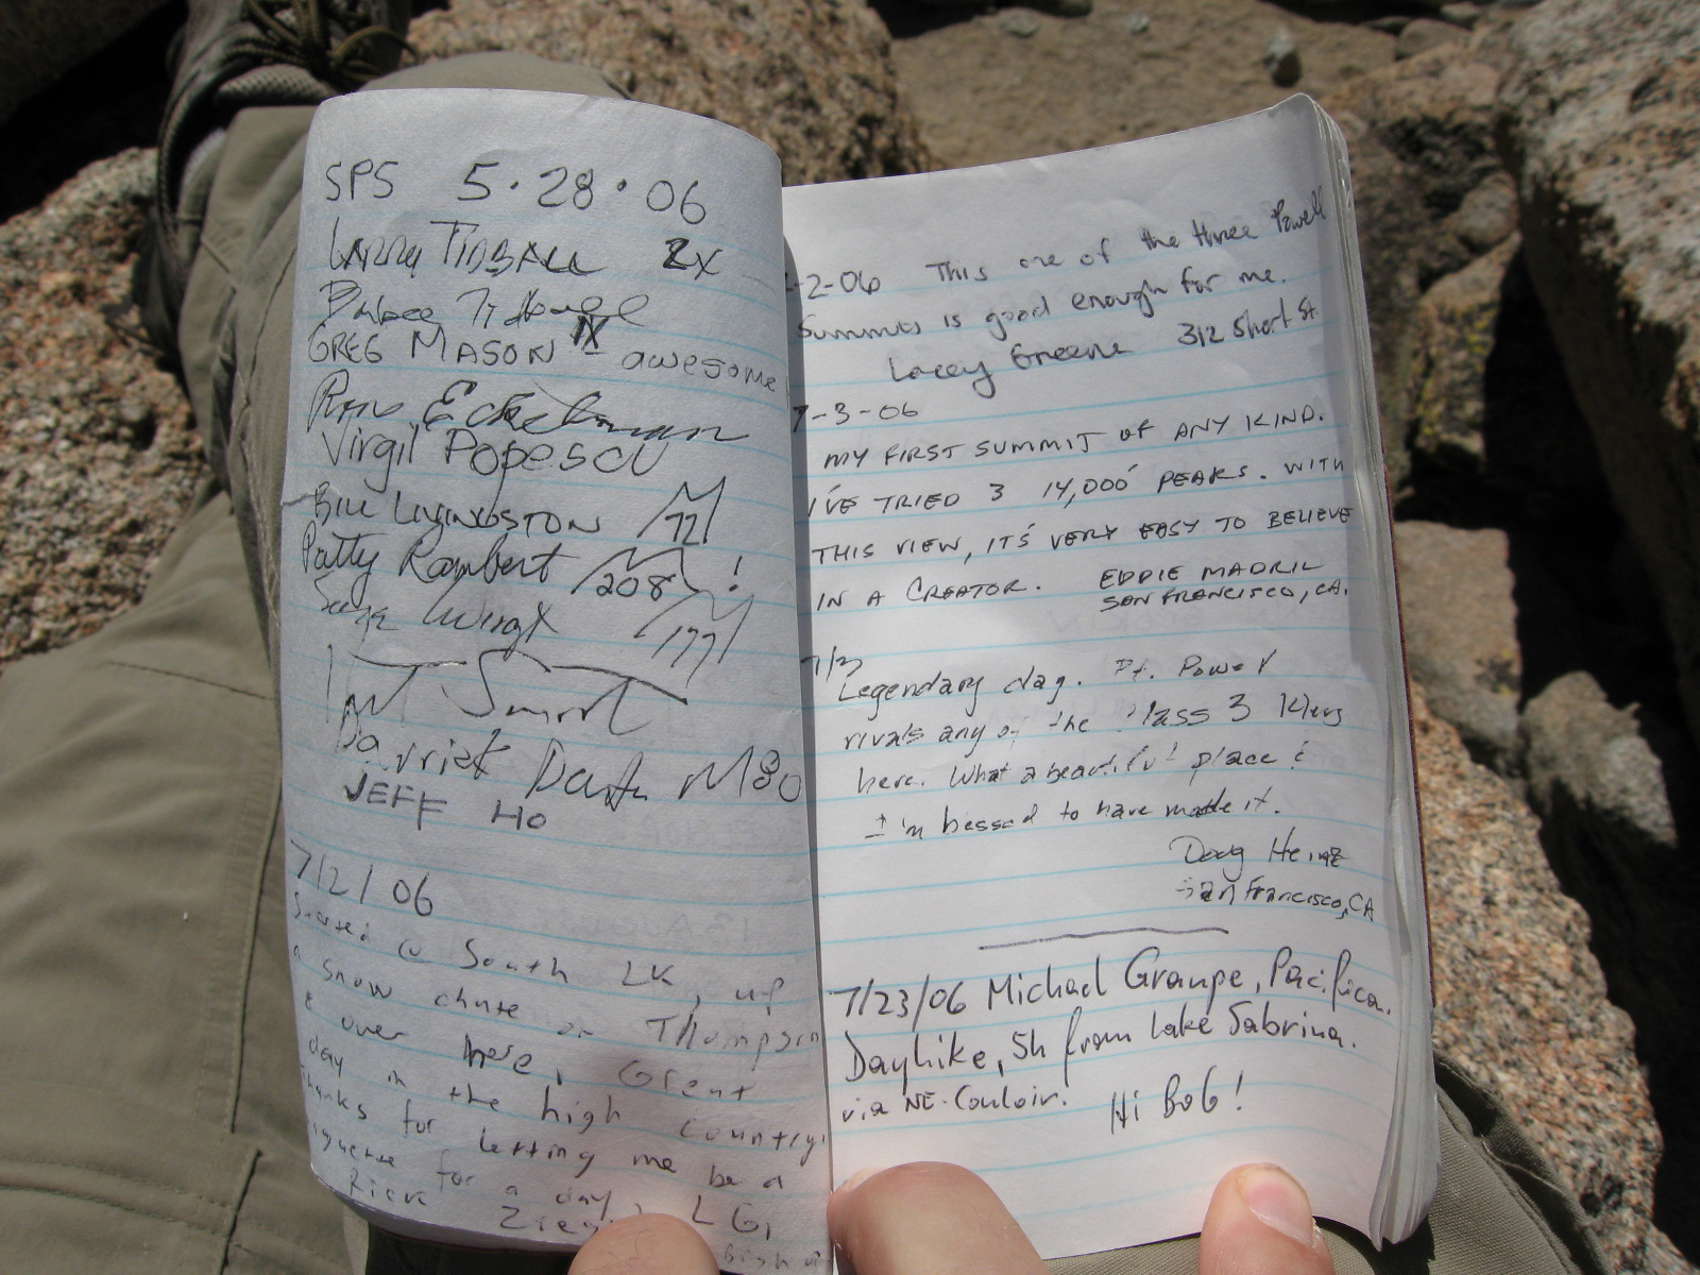 SPS 5·28·06
Larry Tidball 2x
Barbee Tidball
GREG MASON 1x - awesome
Eckelman
Virgil Popescu
BILL LIVINGSTON /72/
Patty Rambert /208/ !
/177/
Smoot
Darrick Danta M80
JEFF HO
7/2/06
Started @ South LK, up
a snow chute on Thompson
& over here, Great
day in the high country,
Thanks for letting me be a
for a day, LG,
Rick
Bishop
-2-06 This one of the three Powell
Summits is good enough for me.
Lacey Greene 312 Short St
7-3-06
MY FIRST SUMMIT OF ANY KIND.
I'VE TRIED 3 14,000' PEAKS. WITH
THIS VIEW, IT'S VERY EASY TO BELIEVE
IN A CREATOR. EDDIE MADRIL
SAN FRANCISCO, CA.
7/3
Legendary day. Pt. Powel
rivals any of the class 3
here. What a beautiful place &
I'm bessed to have made it.
Doug Heinz
San Francisco, CA
7/23/06 Michael Graupe, Pacifica.
Dayhike, 5h from Lake Sabrina.
via NE-Couloir. Hi Bob!